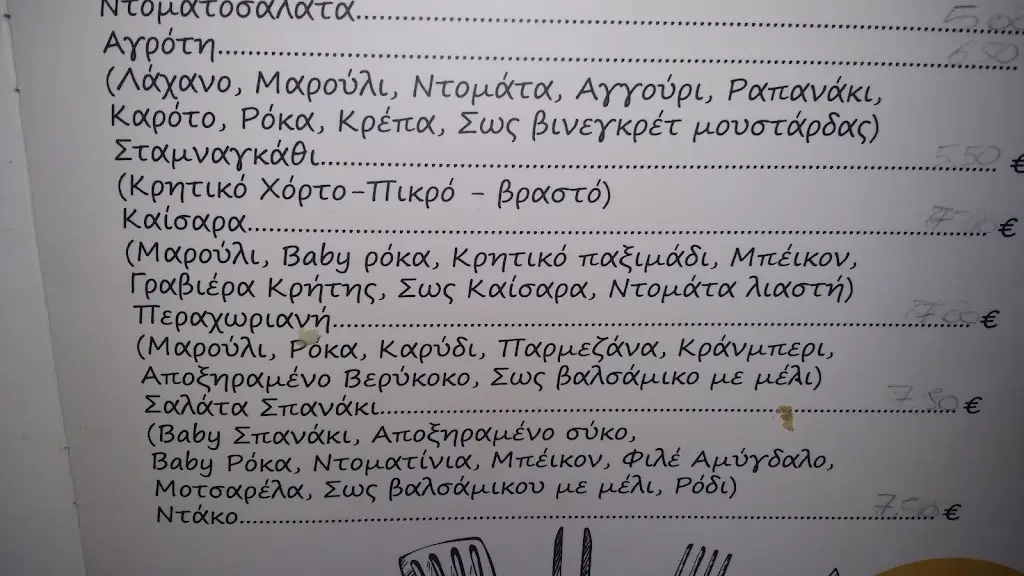 Ντοματοσαλάτα..........5.00
Αγρότη..........6.50
(Λάχανο, Μαρούλι, Ντομάτα, Αγγούρι, Ραπανάκι,
Καρότο, Ρόκα, Κρέπα, Σως βινεγκρέτ μουστάρδας)
Σταμναγκάθι..........5.50 €
(Κρητικό Χόρτο-Πικρό - βραστό)
Καίσαρα.......... €
(Μαρούλι, Baby ρόκα, Κρητικό παξιμάδι, Μπέικον,
Γραβιέρα Κρήτης, Σως Καίσαρα, Ντομάτα λιαστή)
Περαχωριανή..........7.00 €
(Μαρούλι, Ρόκα, Καρύδι, Παρμεζάνα, Κράνμπερι,
Αποξηραμένο Βερύκοκο, Σως βαλσάμικο με μέλι)
Σαλάτα Σπανάκι..........7.50 €
(Baby Σπανάκι, Αποξηραμένο σύκο,
Baby Ρόκα, Ντοματίνια, Μπέικον, Φιλέ Αμύγδαλο,
Μοτσαρέλα, Σως βαλσάμικου με μέλι, Ρόδι)
Ντάκο..........7.50 €